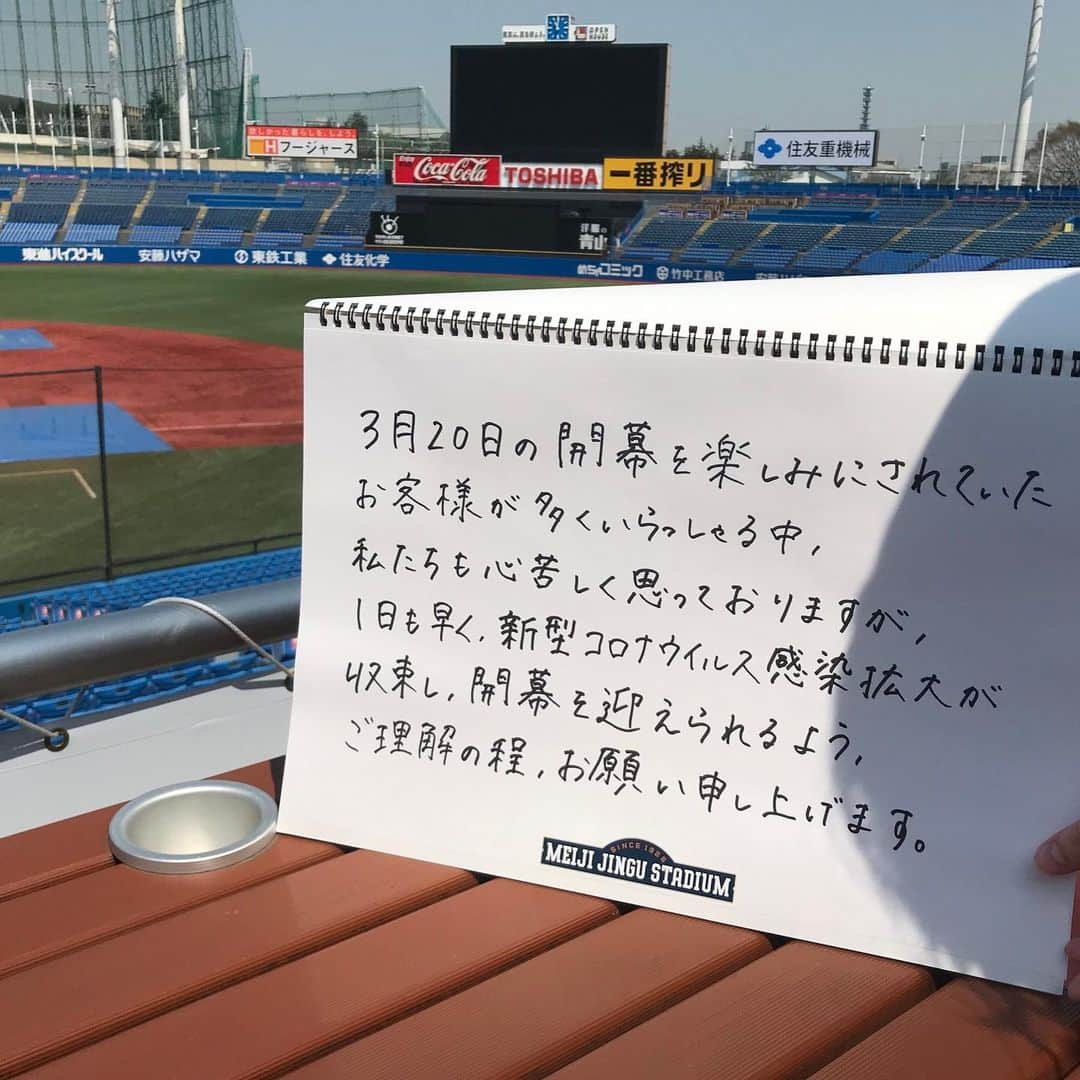 OPEN HOUSE
欲しかった暮らしを、しよう。
フージャース
Enjoy
Coca-Cola
TOSHIBA
一番搾り
住友重機械
洋服の
青山
東進ハイスクール
安藤ハザマ
東鉄工業
住友化学
めちゃコミック
竹中工務店
安藤ハザマ
3月20日の開幕を楽しみにされていた
お客様が多くいらっしゃる中,
私たちも心苦しく思っておりますが,
1日も早く,新型コロナウイルス感染拡大が
収束し,開幕を迎えられるよう,
ご理解の程,お願い申し上げます。
SINCE 1926
MEIJI JINGU STADIUM